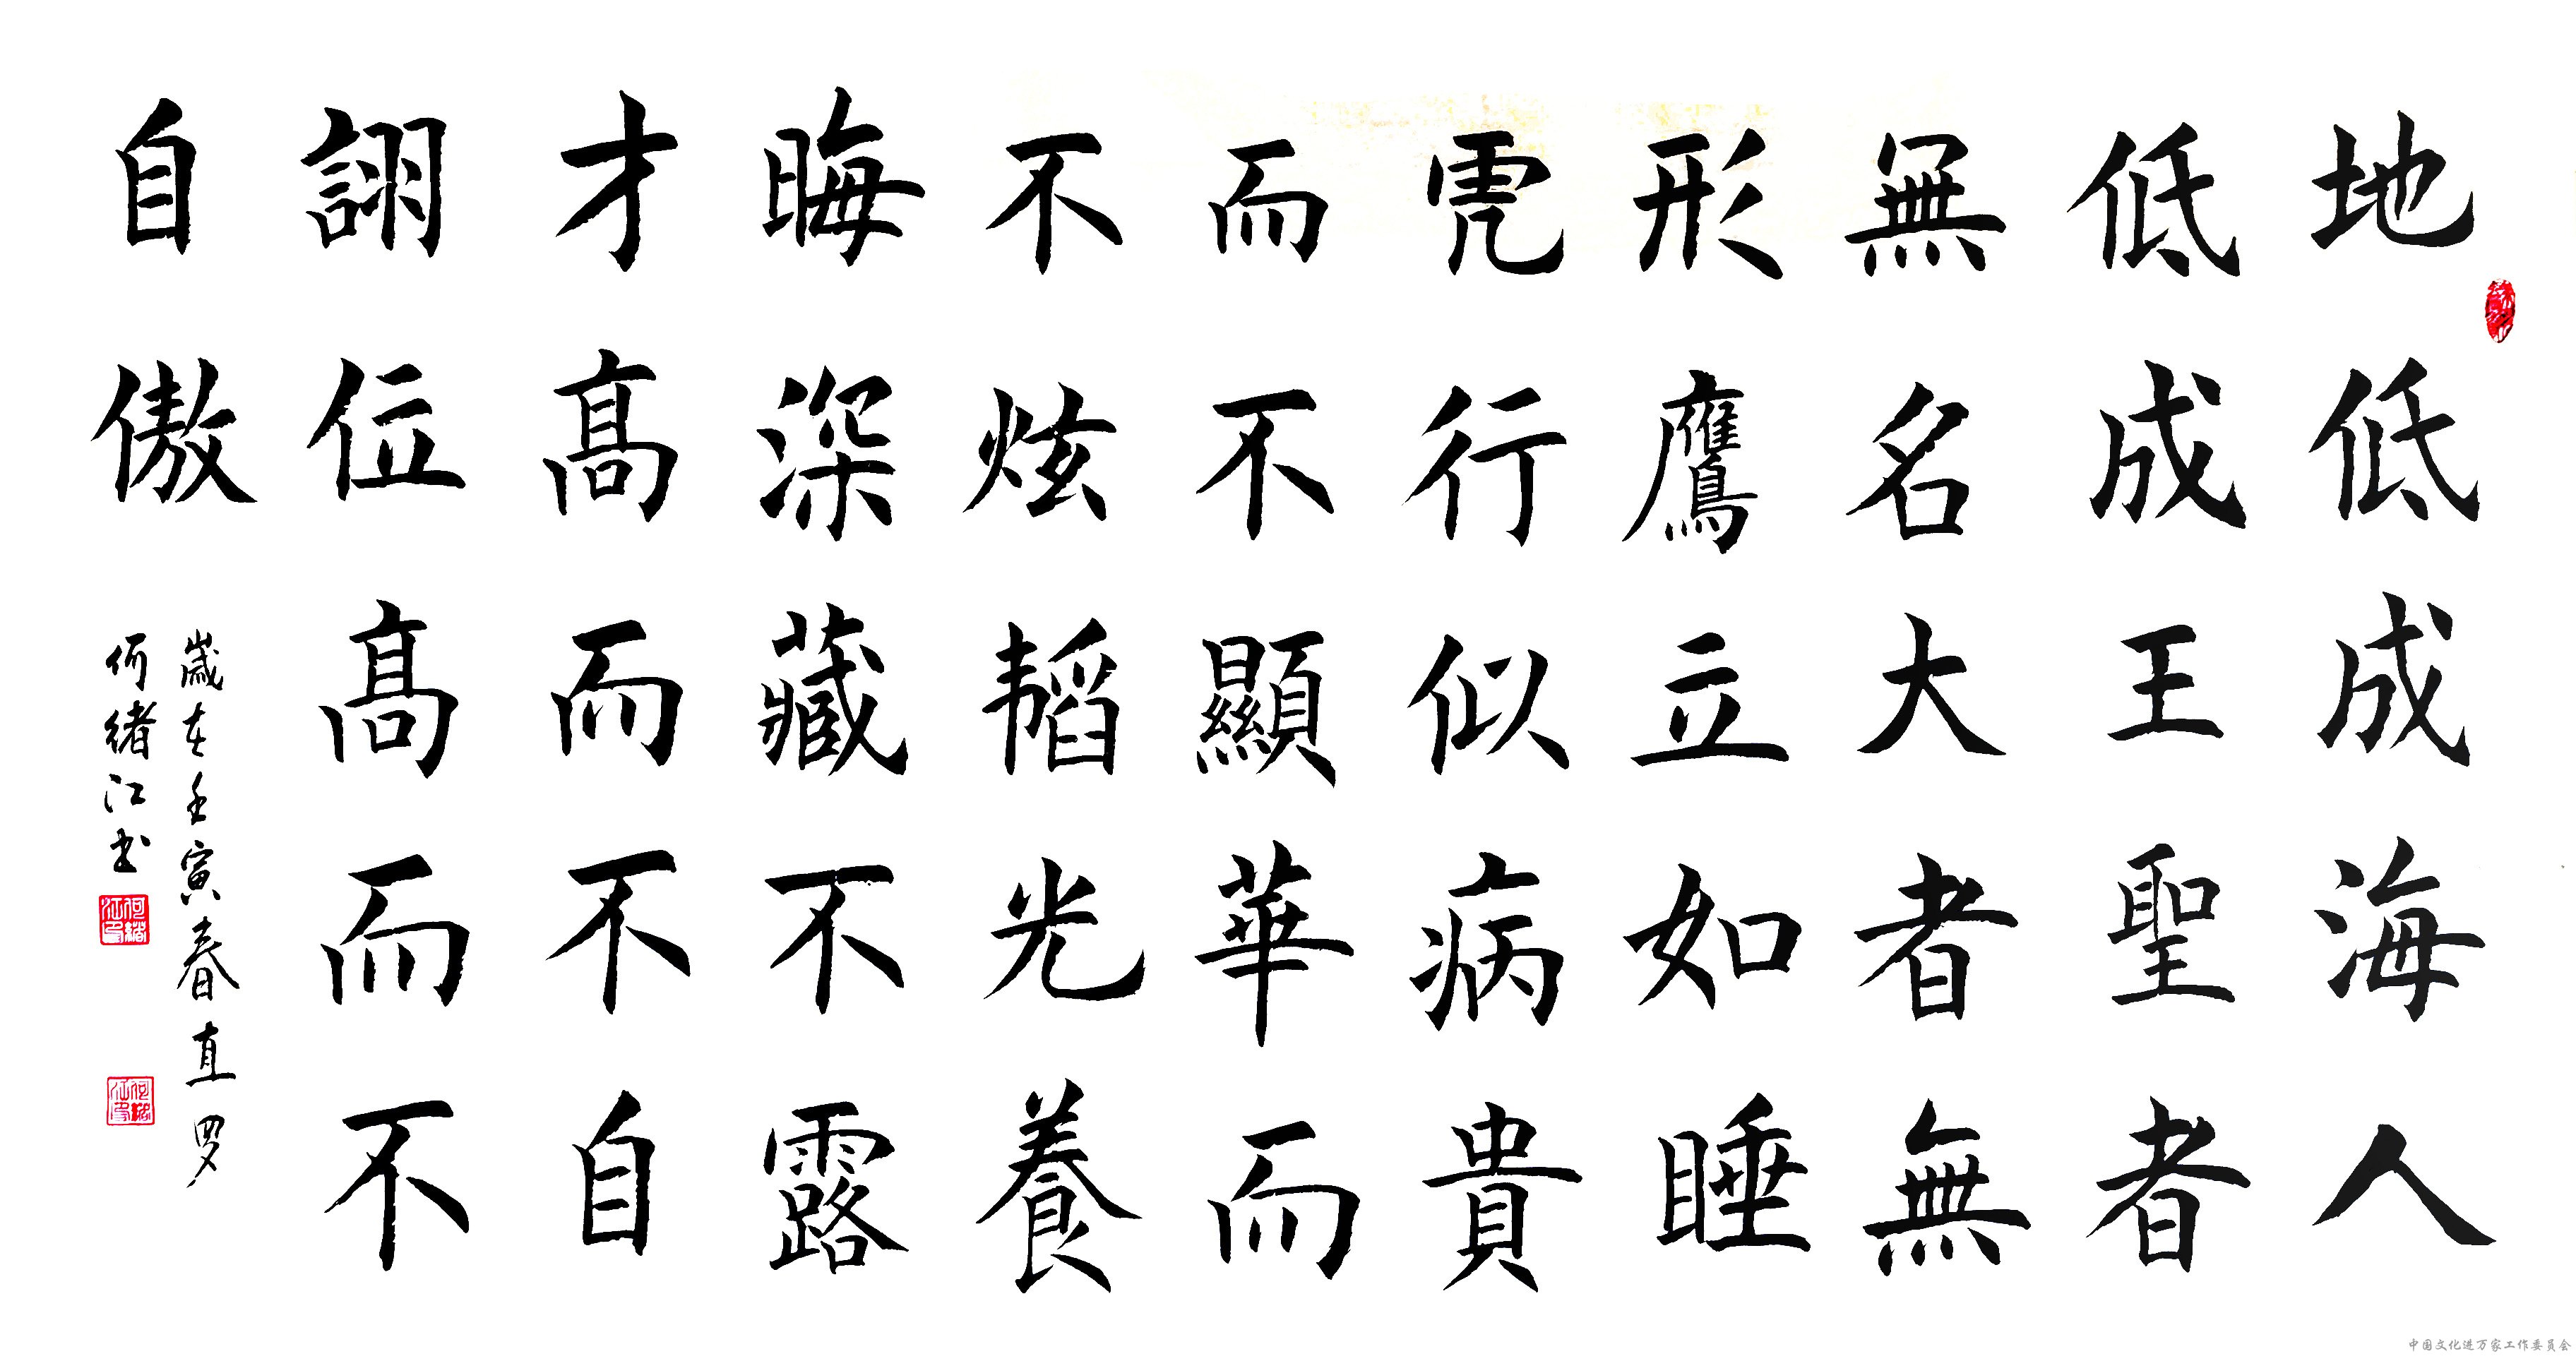 地低成海人
低成王聖者
無名大者無
形鷹立如睡
虎行似病貴
而不顯華而
不炫韬光養
晦深藏不露
才髙而不自
詡位髙而不
自傲
歲在壬寅春直罗
何绪江书
中国文化进万家工作委员会